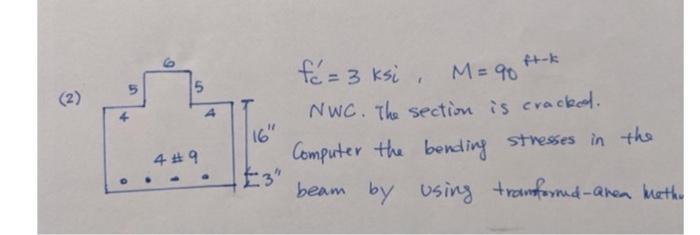 (2)
6
5 5
4 4
16"
4 # 9
3"
f'c = 3 ksi , M = 90 ft-k
NWC. The section is cracked.
Computer the bending stresses in the
beam by using transformed-area Metho